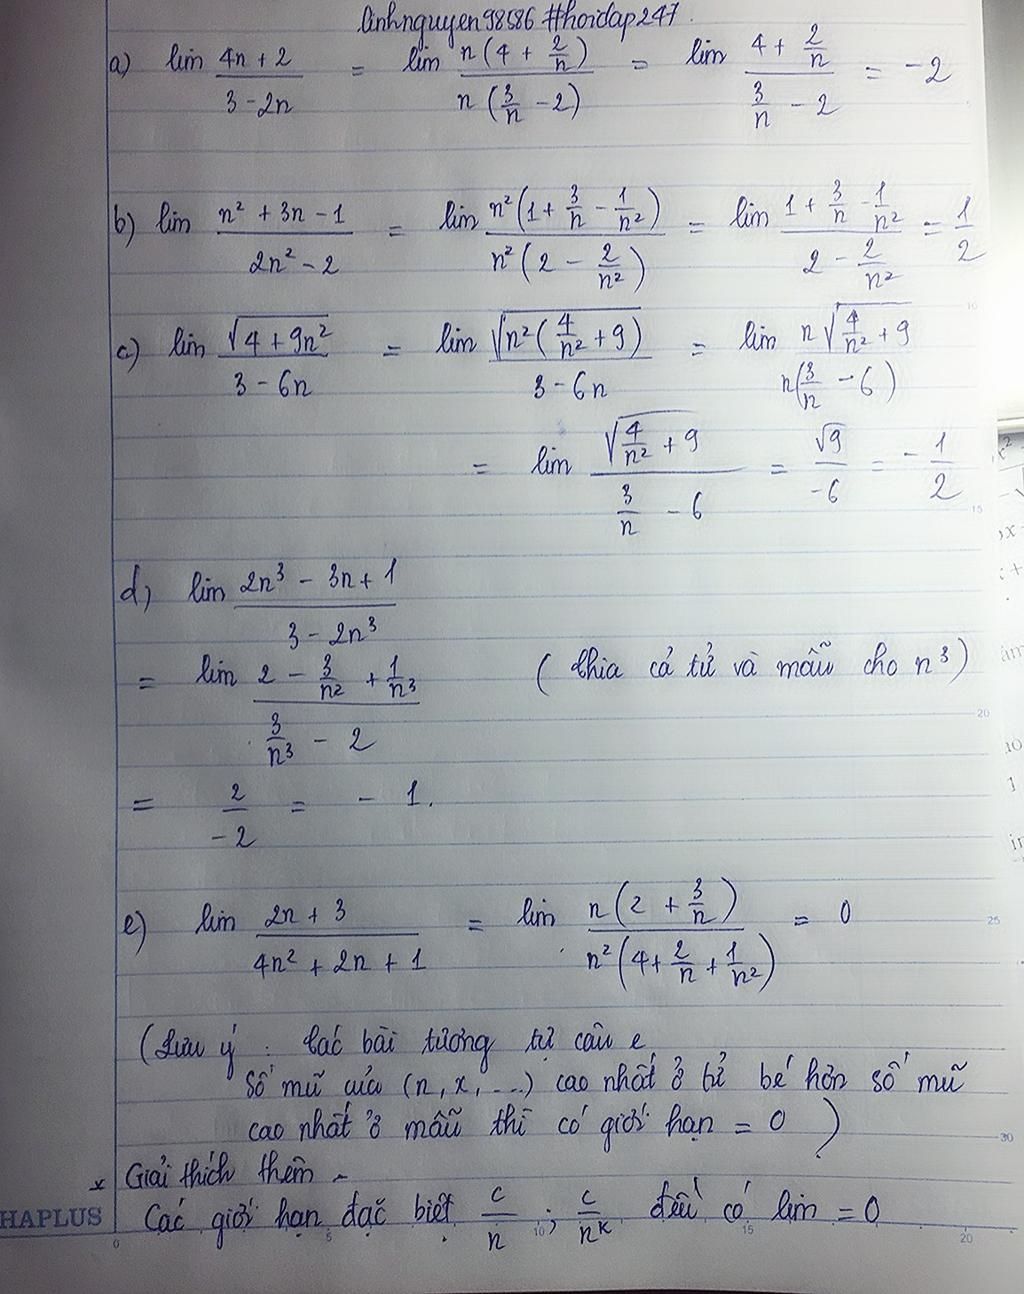 linhnguyen98586 #hoidap247.
a) lim (4n + 2)/(3 - 2n) = lim n(4 + 2/n)/n(3/n - 2) = lim (4 + 2/n)/(3/n - 2) = -2
b) lim (n² + 3n - 1)/(2n² - 2) = lim n²(1 + 3/n - 1/n²)/n²(2 - 2/n²) = lim (1 + 3/n - 1/n²)/(2 - 2/n²) = 1/2
c) lim √(4 + 9n²)/(3 - 6n) = lim √(n²(4/n² + 9))/(3 - 6n) = lim n√(4/n² + 9) n(3/n - 6)
= lim √(4/n² + 9)/(3/n - 6) = √9/-6 = -1/2
d) lim (2n³ - 3n + 1)/(3 - 2n³)
= lim (2 - 3/n² + 1/n³)/(3/n³ - 2) (Chia cả tử và mẫu cho n³)
= 2/-2 = - 1.
e) lim (2n + 3)/(4n² + 2n + 1) = lim n(2 + 3/n)/n²(4 + 2/n + 1/n²) = 0
(Lưu ý : Các bài tương tự câu e
Số mũ của (n, x, ...) cao nhất ở tử bé hơn số mũ
cao nhất ở mẫu thì có giới hạn = 0)
* Giải thích thêm -
Các giới hạn đặc biệt c/n ; c/nᵏ đều có lim = 0
HAPLUS
0 5 10 15 20
10
15
20
25
30